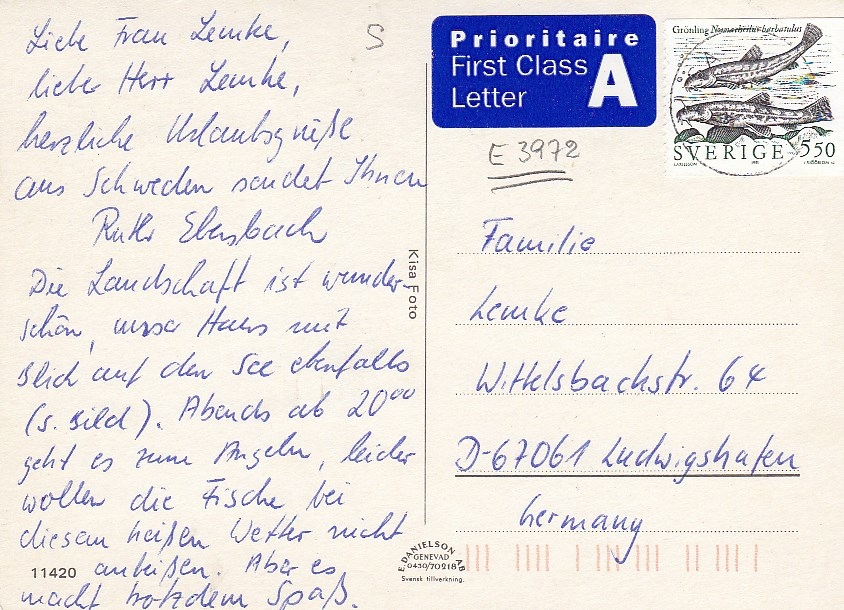 Liebe Frau Lemke,
liebe Herr Lemke,
herzliche Urlaubsgrüße
aus Schweden sendet Ihnen
Ruth Ebersbach
Die Landschaft ist wunder-
schön, unser Haus mit
Blick auf den See ebenfalls
(s. Bild). Abends ab 20⁰⁰
geht es zum Angeln, leider
wollen die Fische bei
diesem heißen Wetter nicht
anbeißen. Aber es
macht trotzdem Spaß.
11420
S
Kisa Foto
E. DANIELSON AB
GENEVAD
0430/70218
Svensk tillverkning.
Prioritaire
First Class
Letter
A
Grönling Noemacheilus barbatulus
SVERIGE 550
E 3972
Familie
Lemke
Wittelsbachstr. 64
D-67061 Ludwigshafen
Germany